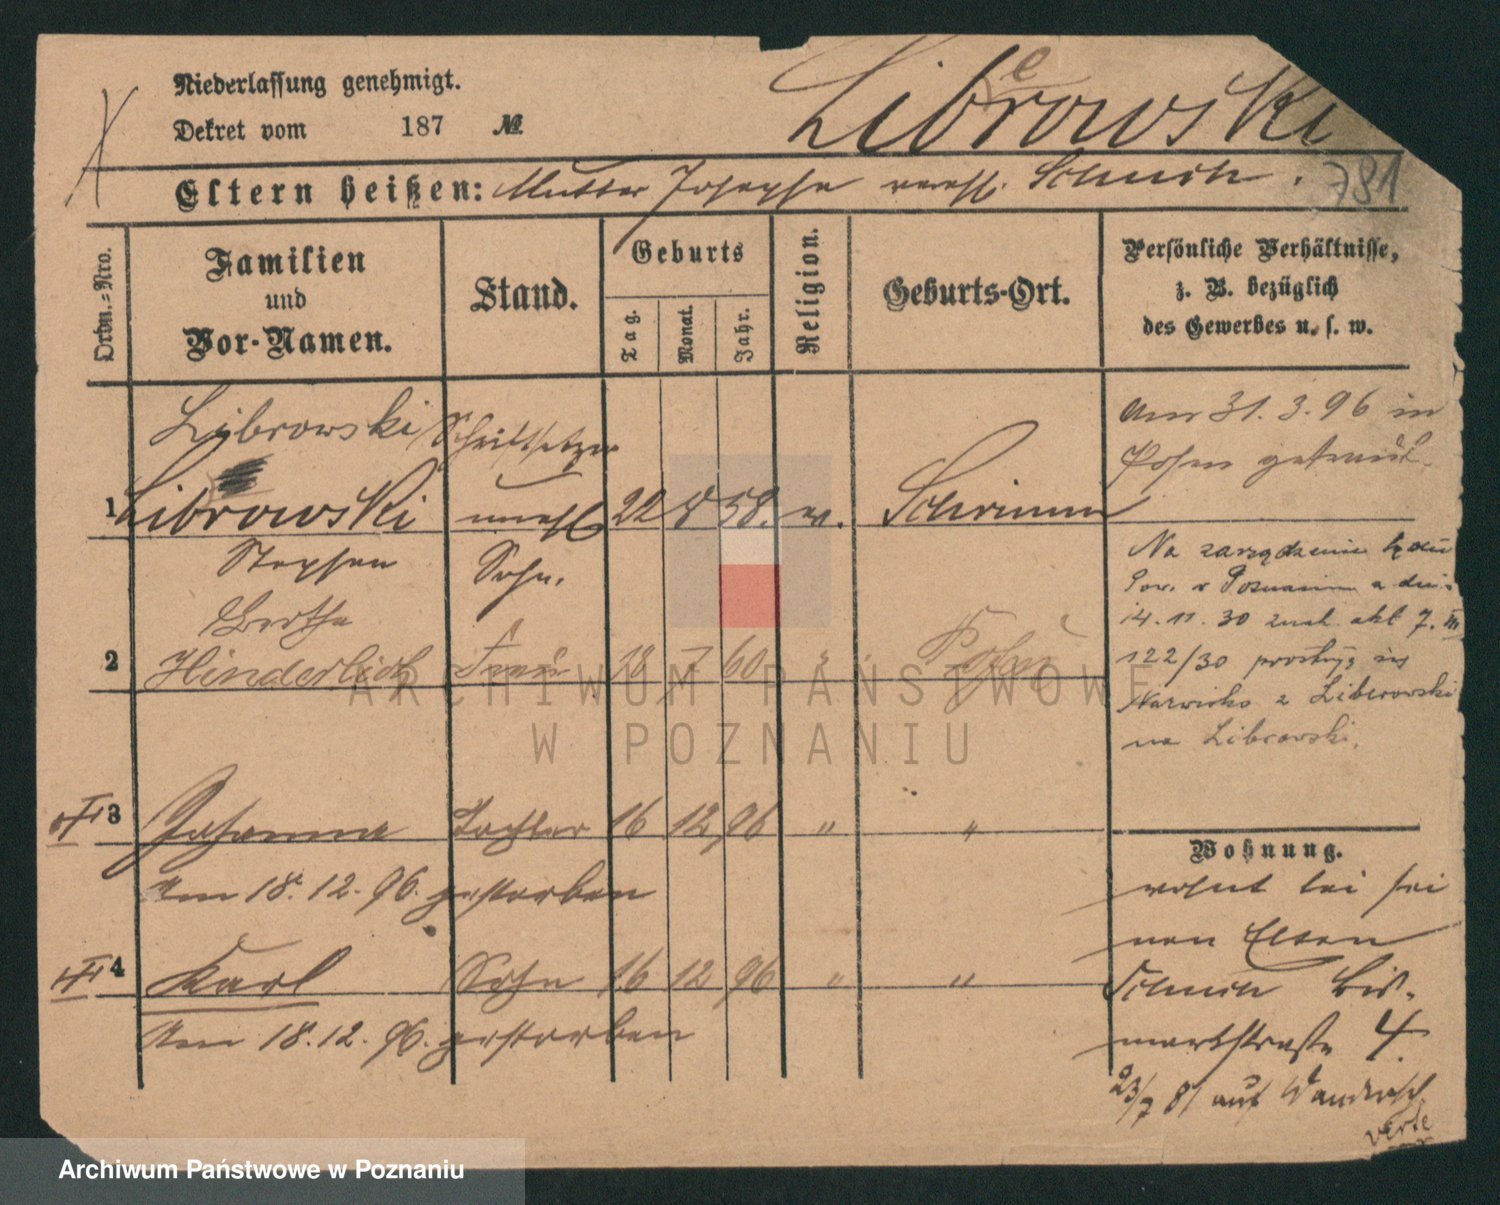 Niederlassung genehmigt.
Dekret vom 187 №
Librowski
e
781
Eltern heißen: Mutter Josepha verehl. Schuch.
Ordn.=Nro.
Familien und Vor-Namen.
Stand.
Geburts
Tag.
Monat.
Jahr.
Religion.
Geburts-Ort.
Persönliche Verhältnisse,
z. B. bezüglich
des Gewerbes u. s. w.
Librowski Schriftsetzer
1 Librowski unehl. 22 8 58. Schrimm
Stephan Sohn.
Am 31. 3. 96 in
Posen getraut.
Na zarządzenie Sądu
Pow. w Poznaniu z dnia
14. 11. 30 znak akt 7. III
122/30 prostuje się
Nazwisko z Liberowski
na Librowski.
Bertha
2 Hinderlich Frau 18 7 60 " Posen
3 Johanna Tochter 16 12 96 " "
Am 18. 12. 96. gestorben
4 Karl Sohn 16 12 96 " "
Am 18. 12. 96. gestorben
Wohnung.
wohnt bei sei
nen Eltern
Schuch Bis-
markstraße 4.
23/7 81 auf Wandersch.
verte
ARCHIWUM PAŃSTWOWE
W POZNANIU
Archiwum Państwowe w Poznaniu